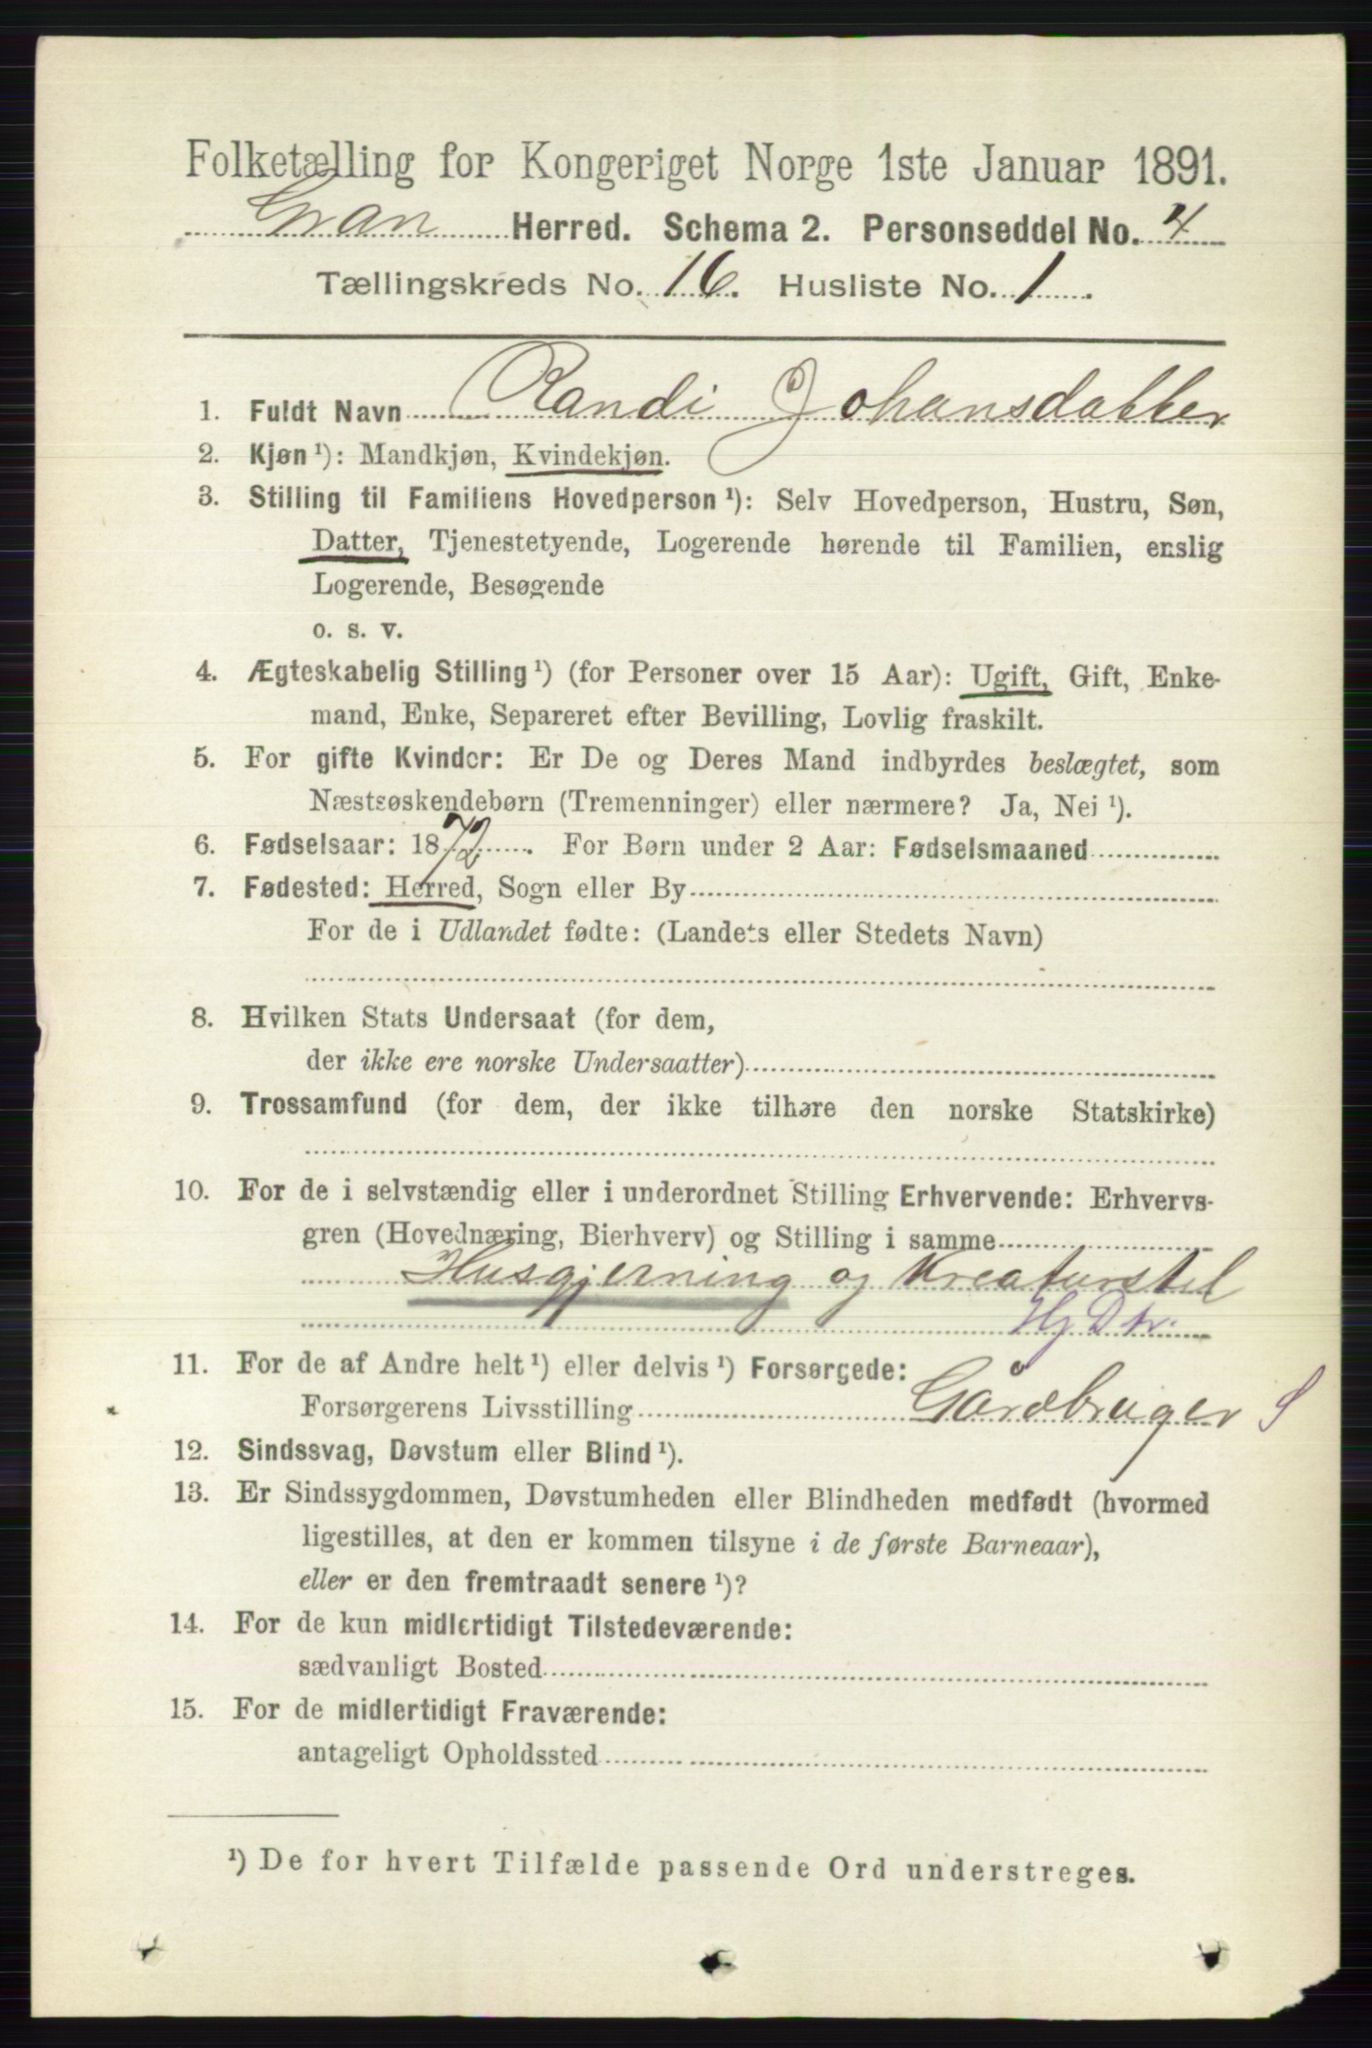 Folketælling for Kongeriget Norge 1ste Januar 1891.
Gran Herred. Schema 2. Personseddel No. 4
Tællingskreds No. 16. Husliste No. 1.
1. Fuldt Navn Randi Johansdatter
2. Kjøn ¹): Mandkjøn, Kvindekjøn.
3. Stilling til Familiens Hovedperson ¹): Selv Hovedperson, Hustru, Søn,
Datter, Tjenestetyende, Logerende hørende til Familien, enslig
Logerende, Besøgende
o. s. v.
4. Ægteskabelig Stilling ¹) (for Personer over 15 Aar): Ugift, Gift, Enke-
mand, Enke, Separeret efter Bevilling, Lovlig fraskilt.
5. For gifte Kvinder: Er De og Deres Mand indbyrdes beslægtet, som
Næstsøskendebørn (Tremenninger) eller nærmere? Ja, Nei ¹).
6. Fødselsaar: 1872. For Børn under 2 Aar: Fødselsmaaned
7. Fødested: Herred, Sogn eller By
For de i Udlandet fødte: (Landets eller Stedets Navn)
8. Hvilken Stats Undersaat (for dem,
der ikke ere norske Undersaatter)
9. Trossamfund (for dem, der ikke tilhøre den norske Statskirke)
10. For de i selvstændig eller i underordnet Stilling Erhvervende: Erhvervs-
gren (Hovednæring, Bierhverv) og Stilling i samme
Husgjerning og Kreaturstel
Hj Dtr.
11. For de af Andre helt ¹) eller delvis ¹) Forsørgede:
Forsørgerens Livsstilling Gårdbruger S
12. Sindssvag, Døvstum eller Blind ¹).
13. Er Sindssygdommen, Døvstumheden eller Blindheden medfødt (hvormed
ligestilles, at den er kommen tilsyne i de første Barneaar),
eller er den fremtraadt senere ¹)?
14. For de kun midlertidigt Tilstedeværende:
sædvanligt Bosted
15. For de midlertidigt Fraværende:
antageligt Opholdssted
¹) De for hvert Tilfælde passende Ord understreges.